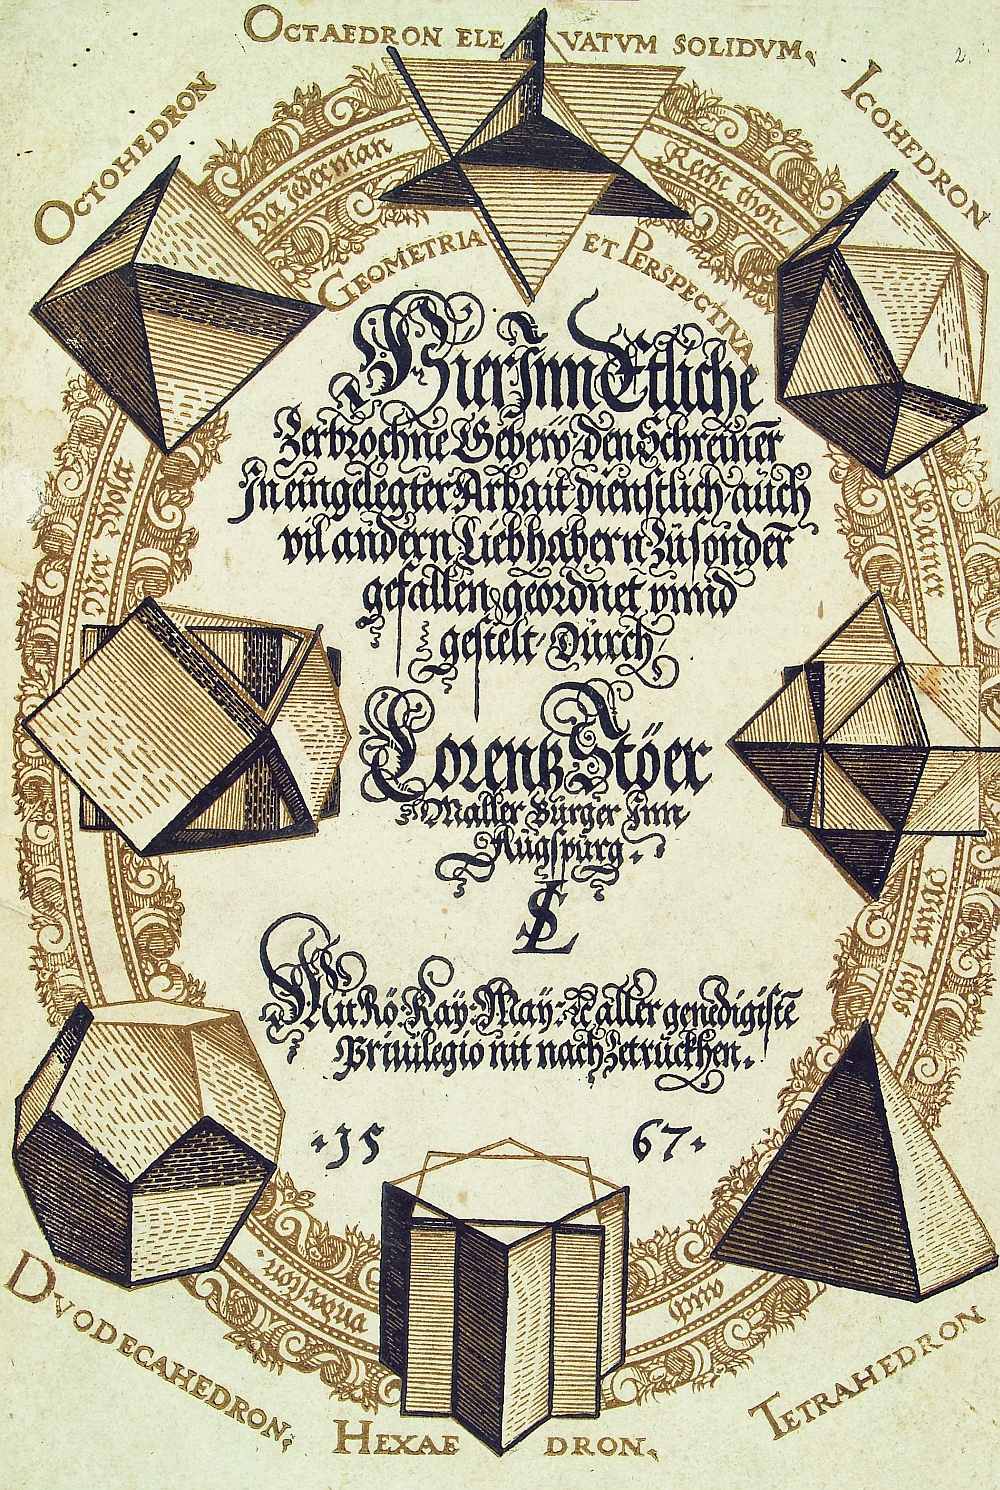 OCTAEDRON ELE VATVM SOLIDVM,
2.
OCTOHEDRON
ICOHEDRON
Wer wolt
da iderman
Recht thon/
Kainer
GEOMETRIA ET PERSPECTIVA
Hier Inn Etliche
Zerbrochne Gebew, den Schreiner̄
In eingelegter Arbait dienstlich, auch
vil andern Liebhabern Zu sonder̄
gefallen, geordnet vnnd
gestelt, Durch,
Lorentz Stöer
Maller Burger Inn
Augspurg.
LS
Mit Rö: Kay: May: ꝛc aller genedigistē
Priuilegio nit nach Zetruckhen.
15 67
vnderston
vnns
DVODECAHEDRON,
HEXAE DRON,
TETRAHEDRON